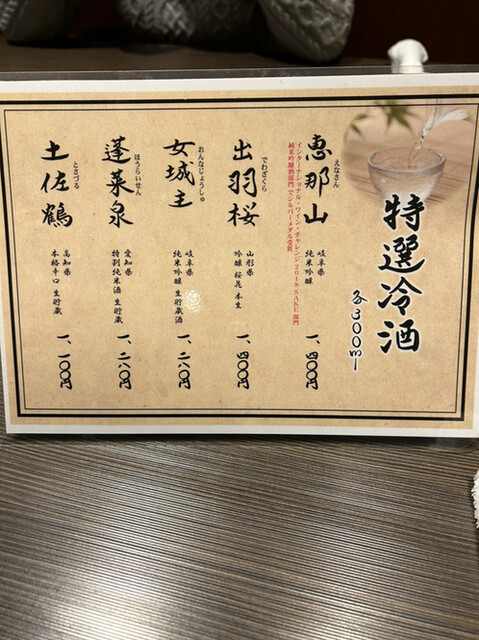 特選冷酒
各300ml
恵那山
えなさん
岐阜県
純米吟醸
一、四〇〇円
インターナショナル・ワイン・チャレンジ2018 SAKE部門
純米吟醸酒部門でシルバーメダル受賞
出羽桜
でわざくら
山形県
吟醸 桜花 本生
一、四〇〇円
女城主
おんなじょうしゅ
岐阜県
純米吟醸 生貯蔵酒
一、二八〇円
蓬莱泉
ほうらいせん
愛知県
特別純米酒 生貯蔵
一、二八〇円
土佐鶴
とさづる
高知県
本格辛口 生貯蔵
一、一〇〇円